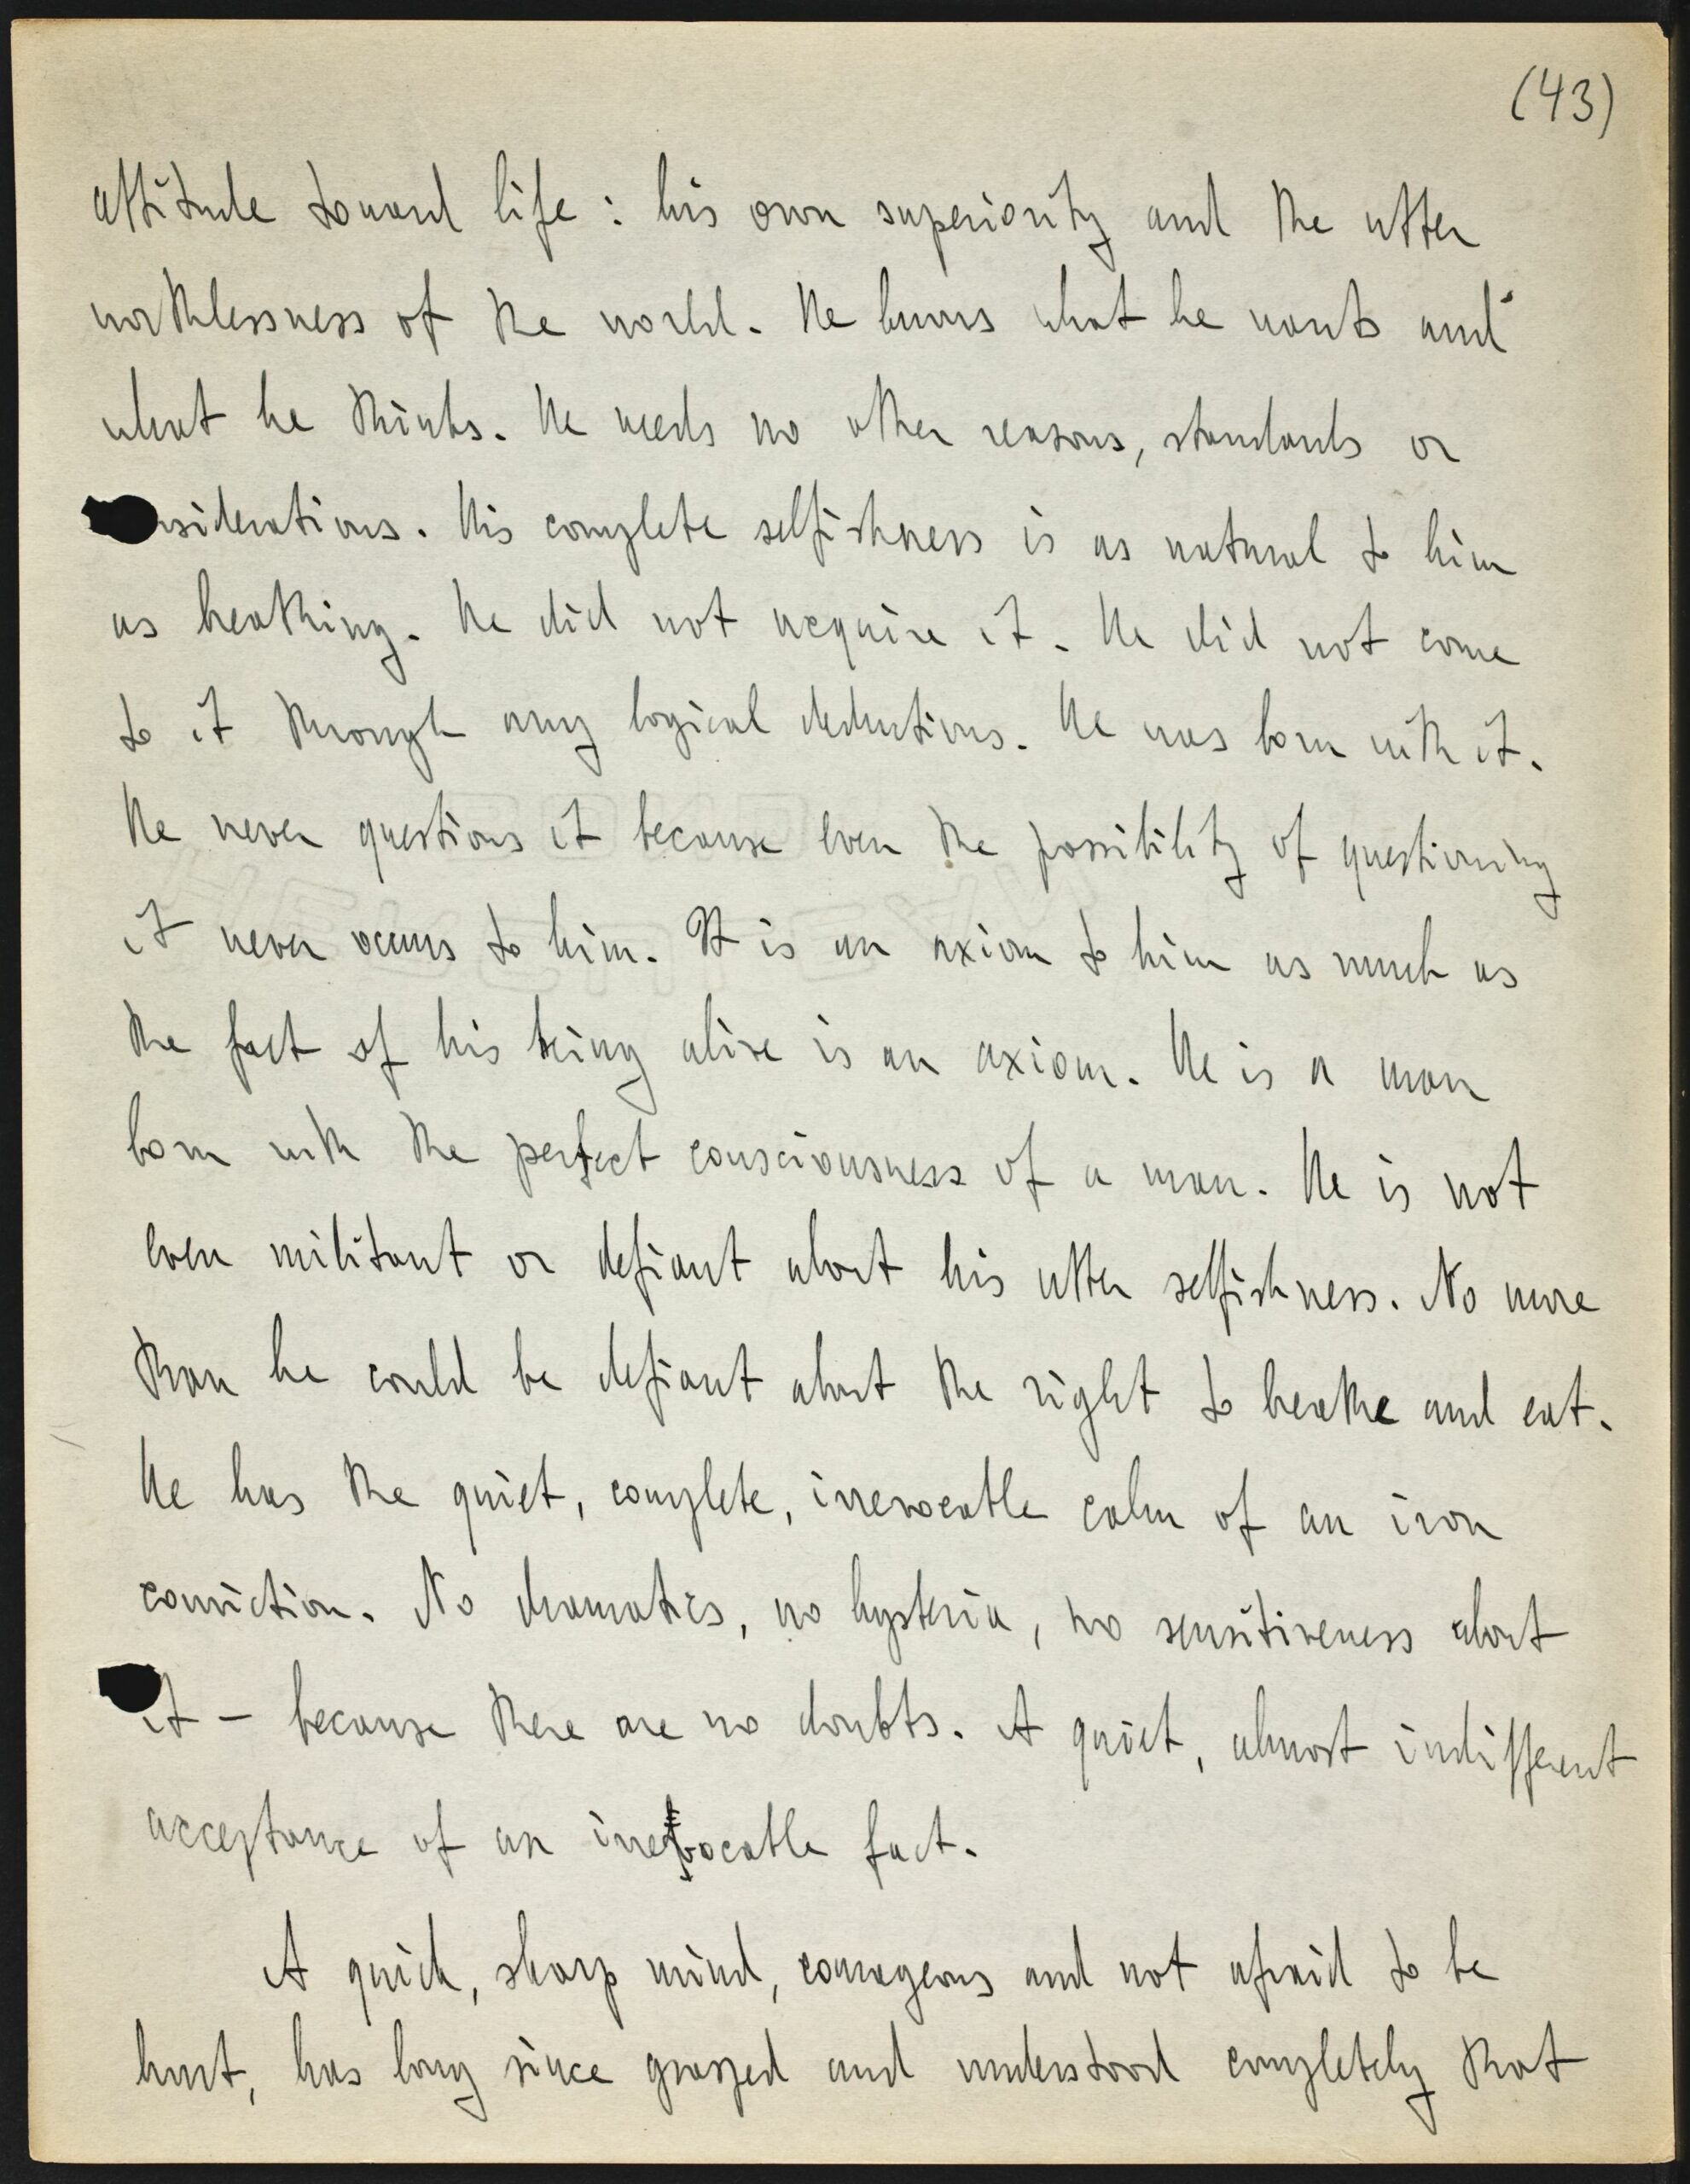 (43)
attitude toward life: his own superiority and the utter
worthlessness of the world. He knows what he wants and
what he thinks. He needs no other reasons, standards or
nsiderations. His complete selfishness is as natural to him
as breathing. He did not acquire it. He did not come
to it through any logical deductions. He was born with it.
He never questions it because even the possibility of questioning
it never occurs to him. It is an axiom to him as much as
the fact of his being alive is an axiom. He is a man
born with the perfect consciousness of a man. He is not
even militant or defiant about his utter selfishness. No more
than he could be defiant about the right to breathe and eat.
He has the quiet, complete, irrevocable calm of an iron
conviction. No dramatics, no hysteria, no sensitiveness about
it – because there are no doubts. A quiet, almost indifferent
acceptance of an irrevocable fact.
A quick, sharp mind, courageous and not afraid to be
hurt, has long since grasped and understood completely that